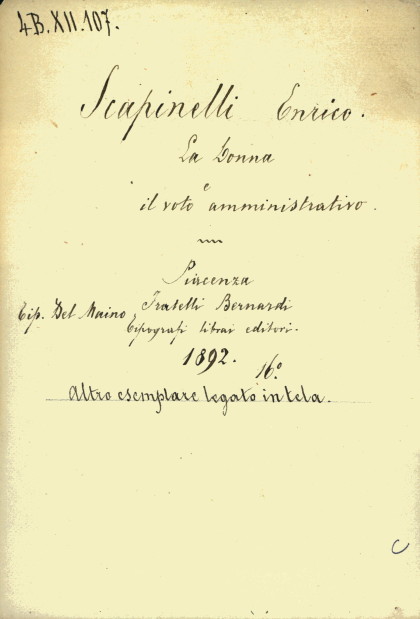 4B.XII.107.
Scapinelli Enrico.
La Donna
e
il voto amministrativo.
Piacenza
Fratelli Bernardi
Tip. Del Maino, Tipografi librai editori.
1892.
16°
Altro esemplare legato in tela.
C